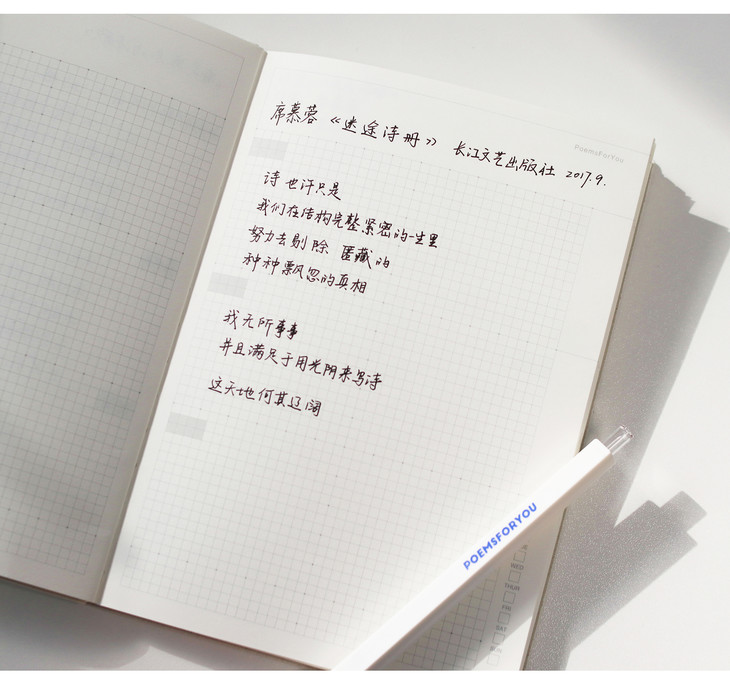 席慕蓉 《迷途诗册》 长江文艺出版社 2017.9.
PoemsForYou
诗也许只是
我们在结构完整紧密的一生里
努力去剔除 匿藏的
种种飘忽的真相
我无所事事
并且满足于用光阴来写诗
这天地何其辽阔
POEMSFORYOU
WED
THUR
FRI
SAT
SUN